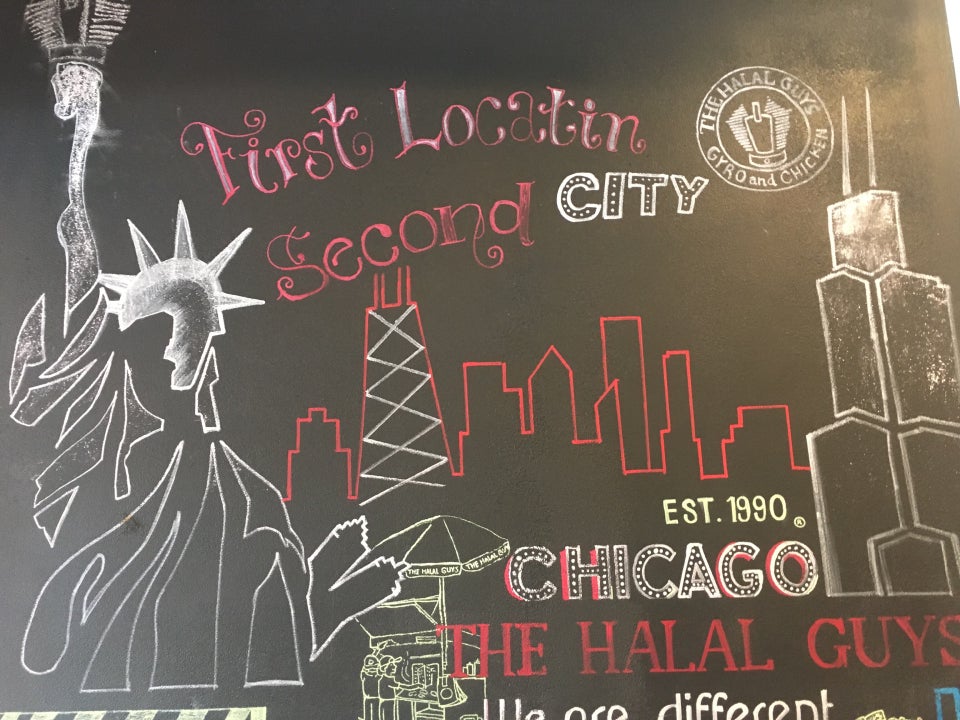 First Locatin
THE HALAL GUYS
GYRO and CHICKEN
Second CITY
EST. 1990 ®
THE HALAL GUYS THE HALAL GUY
CHICAGO
THE HALAL GUYS
We are different